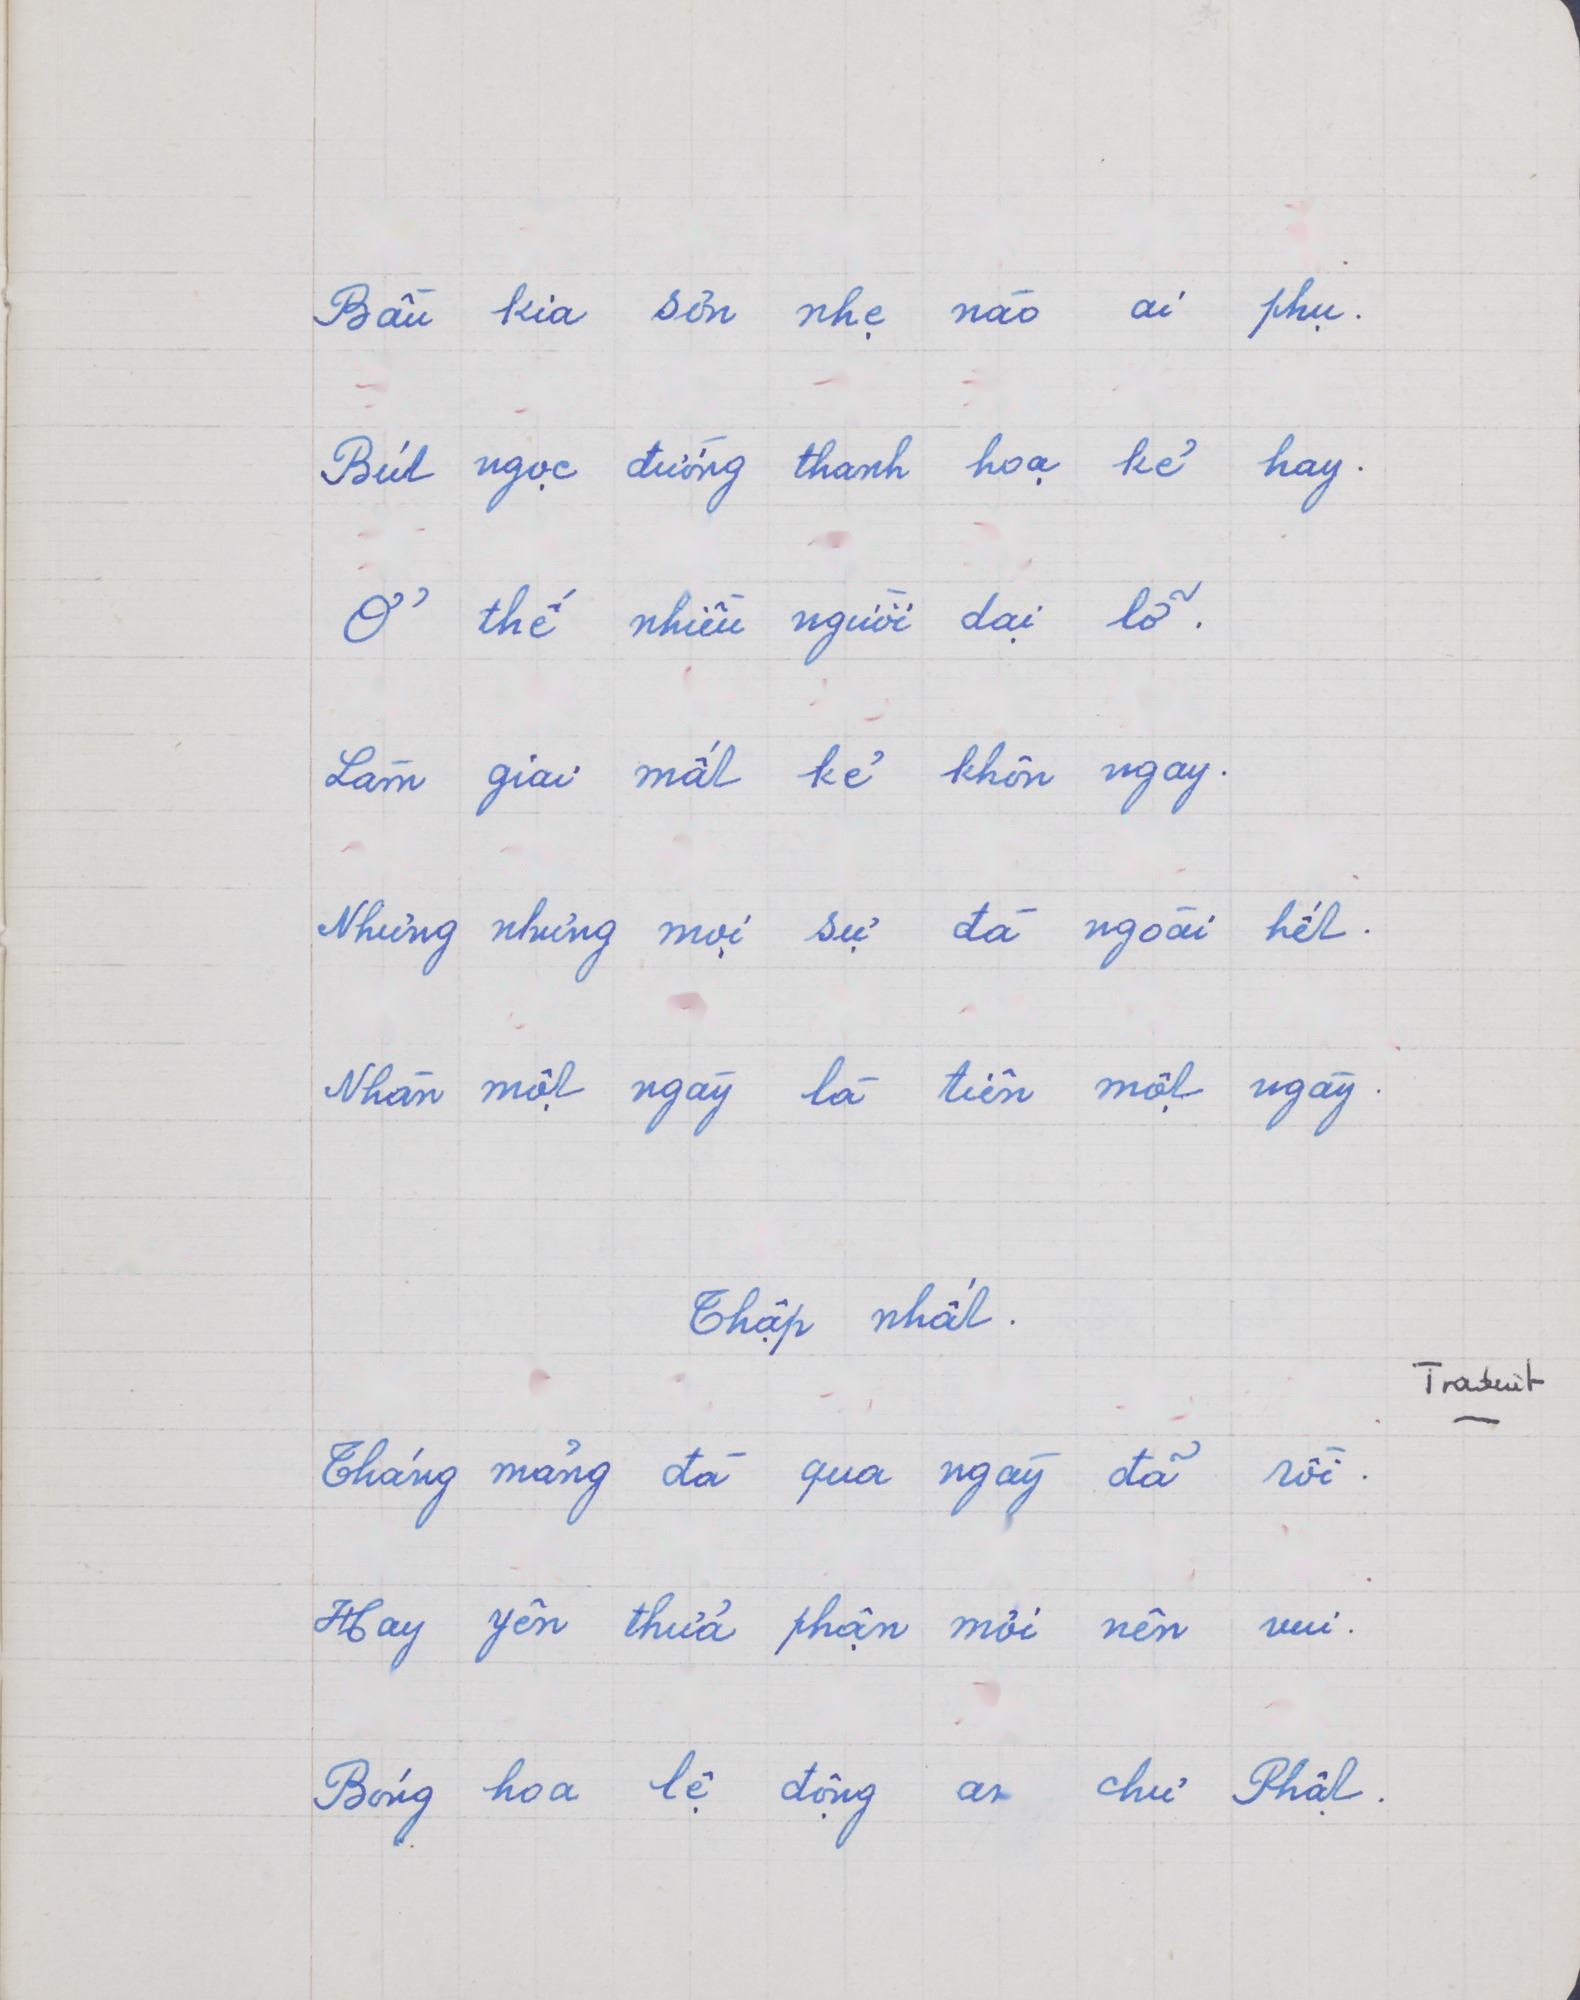 Bầu kia sơn nhẹ nào ai phụ.
Bút ngọc đường thanh hoạ kẻ hay.
Ở thế nhiều người dại lỗ.
Làm giai mất kẻ khôn ngay.
Nhưng nhưng mọi sự đà ngoài hết.
Nhàn một ngày là tiên một ngày.
Thập nhất.
Traduit
Tháng mảng đà qua ngày đã rồi.
Hay yên thửa phận mới nên vui.
Bóng hoa lệ động an chư Phật.